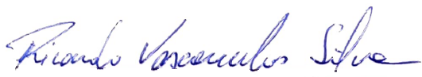 Ricardo Vasconcelos Silva